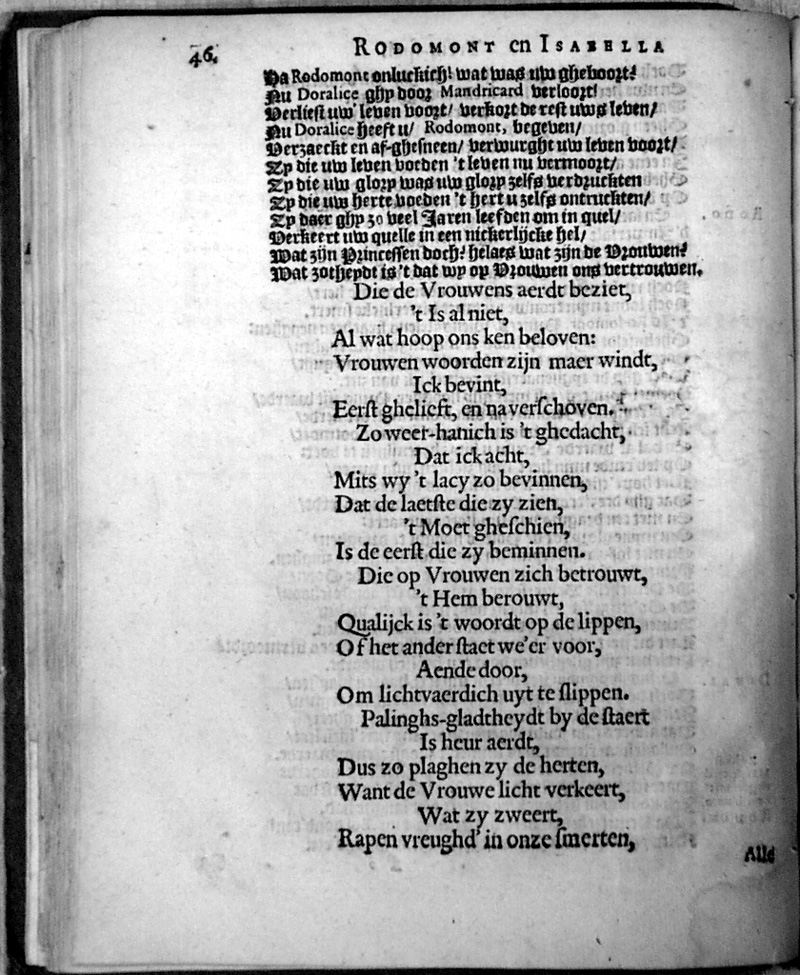 46. RODOMONT en ISABELLA
Na Rodomont onluckich! wat was uw gheboort!
Nu Doralice ghy door Mandricard verloort!
Verliest uw' leven voort/ verkort de rest uws leven/
Nu Doralice heeft u/ Rodomont, begeven/
Verzaeckt en af-ghesneen/ verwurght uw leven voort/
Zy die uw leven voeden 't leven nu vermoort/
Zy die uw glory was uw glory zelfs verdruckten
Zy die uw herte voeden 't hert u zelfs ontruckten/
Zy daer ghy zo veel Jaren leefden om in quel/
Verkeert uw quelle in een nickerlijcke hel/
Wat zijn Princessen doch? helaes wat zijn de Vrouwen?
Wat zotheydt is 't dat wy op Vrouwen ons vertrouwen.
Die de Vrouwens aerdt beziet,
't Is al niet,
Al wat hoop ons ken beloven:
Vrouwen woorden zijn maer windt,
Ick bevint,
Eerſt ghelieft, en na verſchoven.
Zo weer-hanich is 't ghedacht,
Dat ick acht,
Mits wy 't lacy zo bevinnen,
Dat de laetſte die zy zien,
't Moet gheſchien,
Is de eerſt die zy beminnen.
Die op Vrouwen zich betrouwt,
't Hem berouwt,
Qualijck is 't woordt op de lippen,
Of het ander ſtaet we'er voor,
Aende door,
Om lichtvaerdich uyt te ſlippen.
Palinghs-gladtheydt by de ſtaert
Is heur aerdt,
Dus zo plaghen zy de herten,
Want de Vrouwe licht verkeert,
Wat zy zweert,
Rapen vreughd' in onze ſmerten,
Alſſ